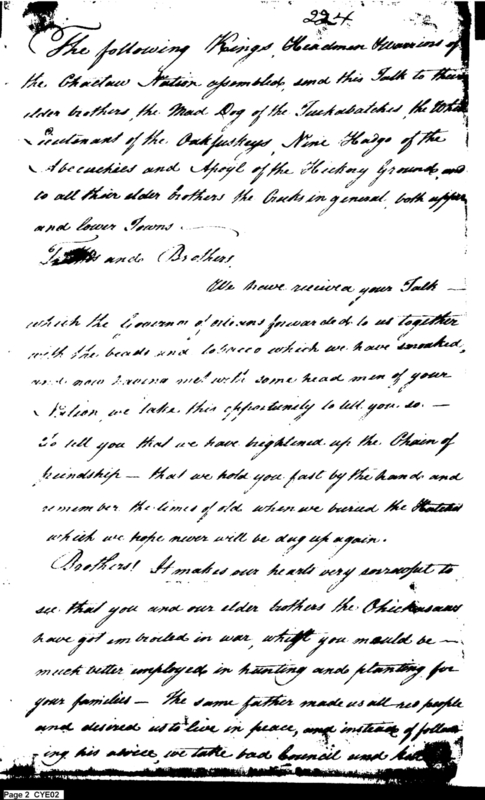 224
The following Kings, Headmen & Warriors of
the Choctaw Nation assembled, send this Talk to their
elder brothers, the Mad Dog of the Tuckabatches, the White
Lieutenant of the Oakfuskeys, Nine Hadgo of the
Abecuchies and Apoyl of the Hickory Ground, and
to all their elder brothers the Creeks in general, both upper
and lower Towns
Friends and Brothers!
We have received your Talk —
which the Governor of orleans forwarded to us together
with the beads and tobacco which we have smoaked,
and now having met with some head men of your
Nation, we take this opportunity to tell you so. —
To tell you that we have brightened up the Chain of
friendship — that we hold you fast by the hand and
remember the times of old when we buried the Hatchet
which we hope never will be dug up again.
Brothers! It makes our hearts very sorrowful to
see that you and our elder brothers the Chickasaws
have got embroiled in war, whilst you would be —
much better employed in hunting and planting for
your families — The same father made us all red people
and desired us to live in peace, and instead of follow
ing his advice, we take bad Council and
Page 2 CYE02